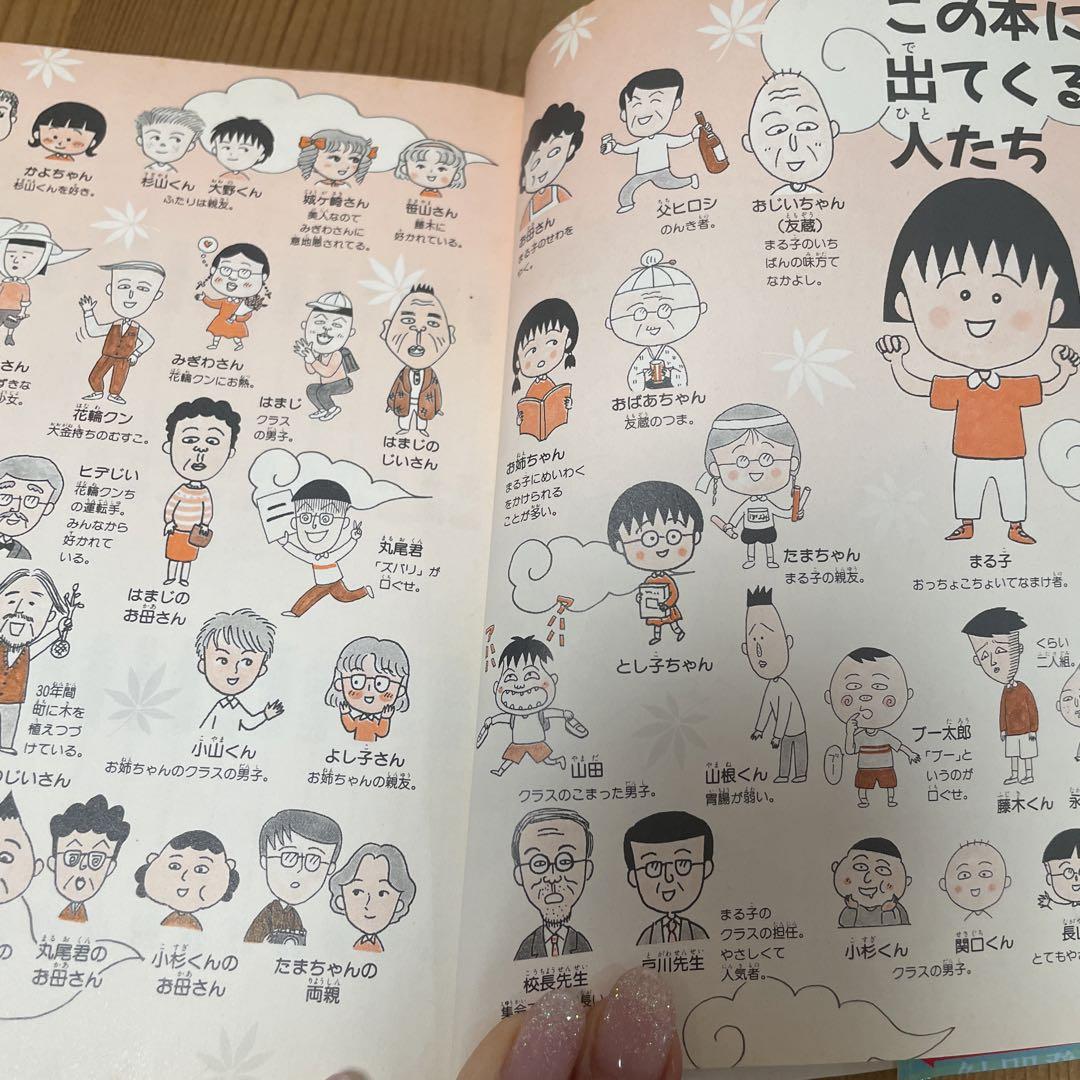 この本に
出てくる
人たち
父ヒロシ
のんき者。
おじいちゃん
（友蔵）
まる子のいち
ばんの味方で
なかよし。
お母さん
まる子のせわを
やく。
おばあちゃん
友蔵のつま。
お姉ちゃん
まる子にめいわく
をかけられる
ことが多い。
たまちゃん
まる子の親友。
まる子
おっちょこちょいでなまけ者。
とし子ちゃん
アハハ
アハハハ
山田
クラスのこまった男子。
山根くん
胃腸が弱い。
ブー
ブー太郎
「ブー」と
いうのが
口ぐせ。
くらい
二人組。
藤木くん
永
校長先生
集会で
長い
戸川先生
まる子の
クラスの担任。
やさしくて
人気者。
小杉くん
関口くん
クラスの男子。
長山
とてもや
かよちゃん
杉山くんを好き。
杉山くん
大野くん
ふたりは親友。
城ヶ崎さん
美人なので
みぎわさんに
意地悪されてる。
笹山さん
藤木に
好かれている。
さん
ずきな
少女。
花輪クン
大金持ちのむすこ。
みぎわさん
花輪クンにお熱。
はまじ
クラス
の男子。
はまじの
じいさん
ヒデじい
花輪クンち
の運転手。
みんなから
好かれて
いる。
はまじの
お母さん
丸尾君
「ズバリ」が
口ぐせ。
30年間
町に木を
植えつづ
けている。
のじいさん
小山くん
お姉ちゃんのクラスの男子。
よし子さん
お姉ちゃんの親友。
の
丸尾君の
お母さん
小杉くんの
お母さん
たまちゃんの
両親